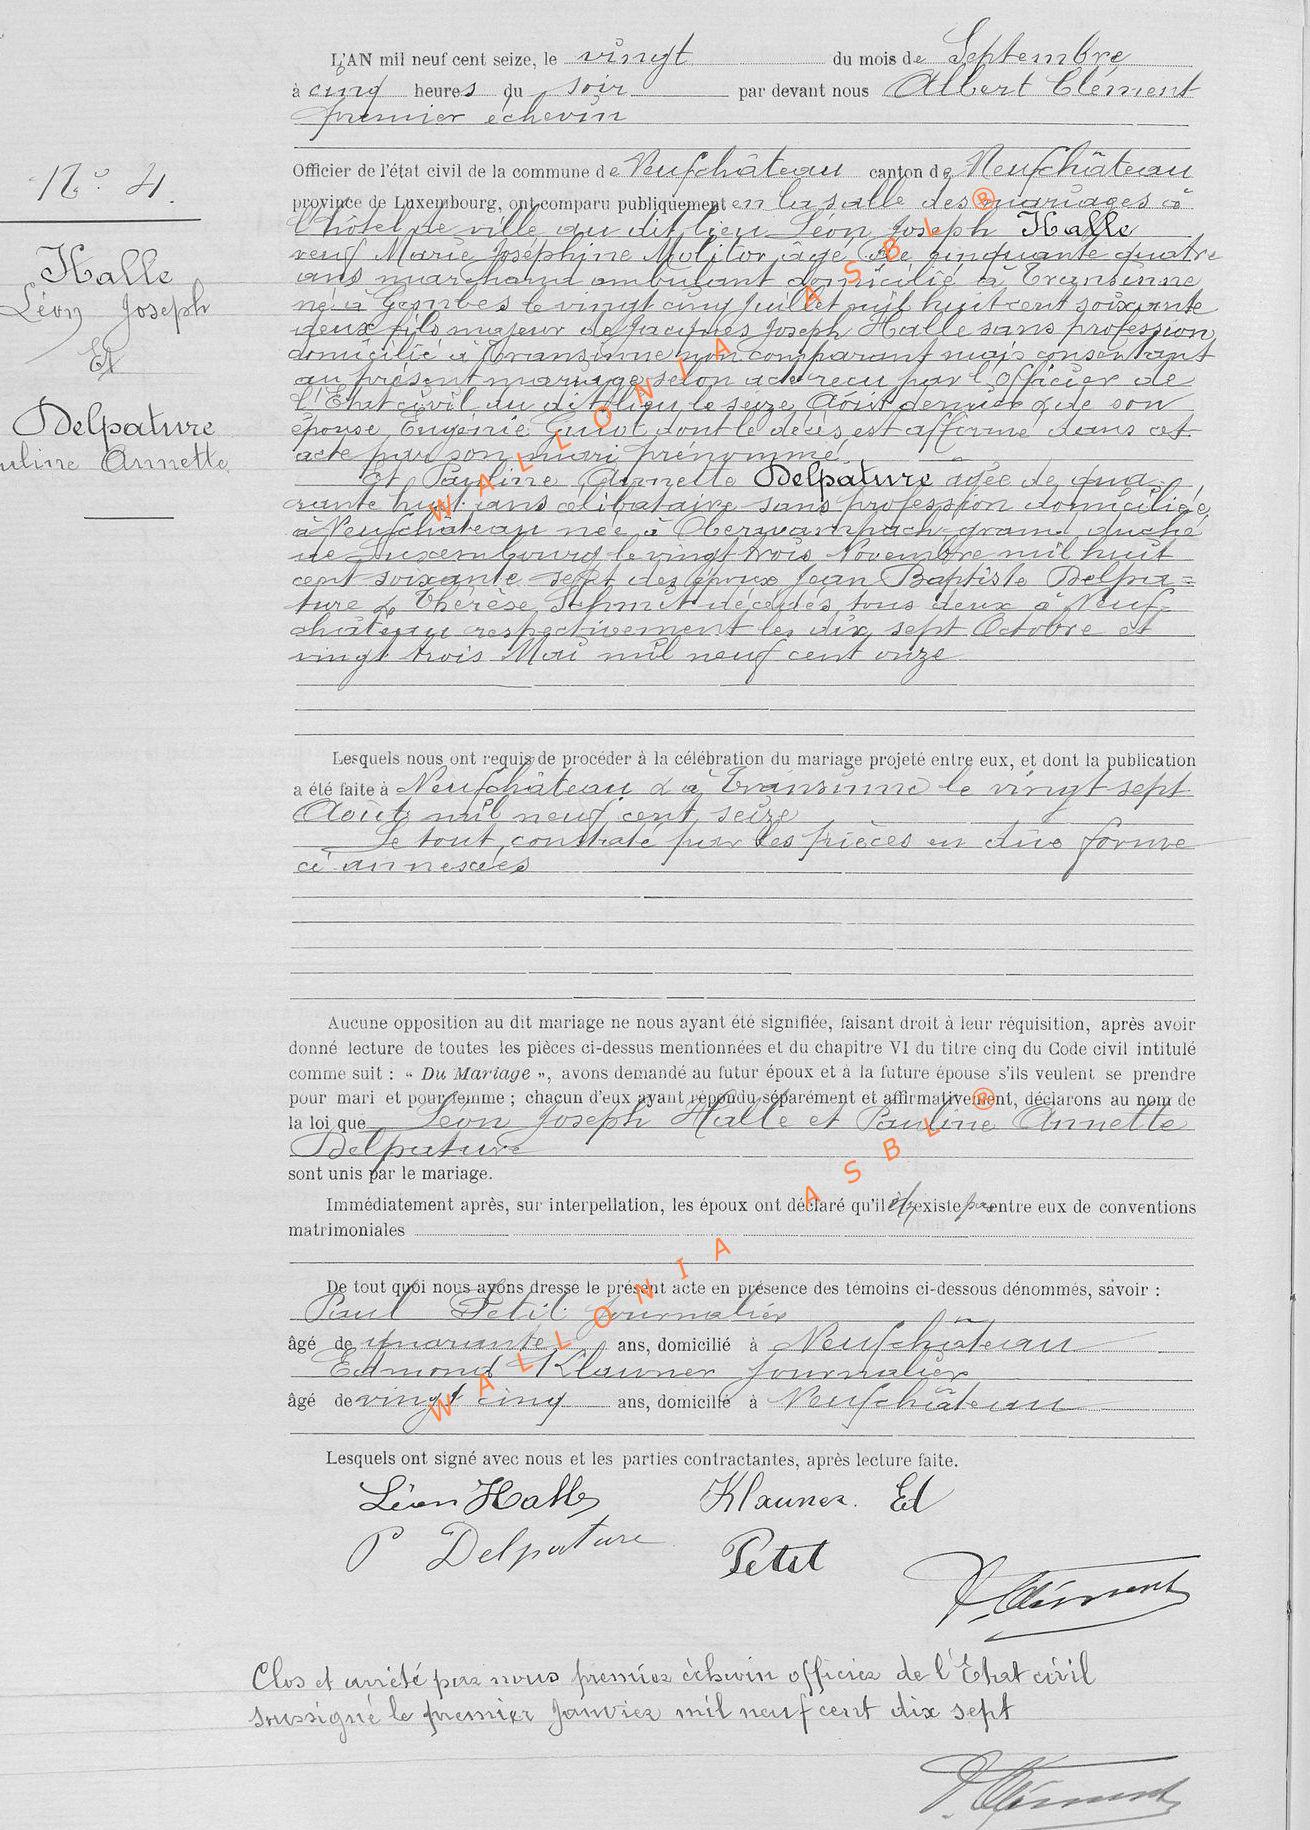 L'AN mil neuf cent seize, le vingt du mois de Septembre
à cinq heures du soir par devant nous Albert Clément
premier échevin
Officier de l'état civil de la commune de Neufchâteau canton de Neufchâteau
province de Luxembourg, ont comparu publiquement en la salle des mariages à
l'hôtel de ville au dit lieu Léon Joseph Halle
veuf Marie Joséphine Molitor âgé de cinquante quatre
ans marchand ambulant domicilié à Transinne
né à Jambes le vingt cinq Juillet mil huit cent soixante
deux fils majeur de Jacques Joseph Halle sans profession
domicilié à Transinne non comparant mais consentant
au présent mariage selon acte reçu par l'Officier de
l'Etat civil du dit lieu le seize Août dernier & de son
épouse Eugénie Guiot dont le décès est affirmé dans cet
acte par son mari prénommé
Et Pauline Annette Delpature agée de qua-
rante huit ans célibataire sans profession domiciliée
à Neufchâteau née à Oberwampach grand duché
de Luxembourg le vingt trois Novembre mil huit
cent soixante sept des époux Jean Baptiste Delpa=
ture & Thérèse Schmit décédés tous deux à Neuf-
château respectivement les dix sept Octobre et
vingt trois Mai mil neuf cent onze
Nº 4.
Halle
Léon Joseph
Et
Delpature
uline Annette
Lesquels nous ont requis de procéder à la célébration du mariage projeté entre eux, et dont la publication
a été faite à Neufchâteau & à Transinne le vingt sept
Août mil neuf cent seize
Le tout constaté par les pièces en due forme
ci annexées
Aucune opposition au dit mariage ne nous ayant été signifiée, faisant droit à leur réquisition, après avoir
donné lecture de toutes les pièces ci-dessus mentionnées et du chapitre VI du titre cinq du Code civil intitulé
comme suit : « Du Mariage », avons demandé au futur époux et à la future épouse s'ils veulent se prendre
pour mari et pour femme ; chacun d'eux ayant répondu séparément et affirmativement, déclarons au nom de
la loi que Léon Joseph Halle et Pauline Annette
Delpature
sont unis par le mariage.
Immédiatement après, sur interpellation, les époux ont déclaré qu'il n'existe pas entre eux de conventions
matrimoniales
De tout quoi nous avons dressé le présent acte en présence des témoins ci-dessous dénommés, savoir :
Paul Petit journalier
âgé de quarante ans, domicilié à Neufchâteau
Edmond Klauner journalier
âgé de vingt cinq ans, domicilié à Neufchâteau
Lesquels ont signé avec nous et les parties contractantes, après lecture faite.
Léon Halle Klauner. Ed
P Delpature Petit
A. Clément
Clos et arrêté par nous premier échevin officier de l'Etat civil
soussigné le premier Janvier mil neuf cent dix sept
A. Clément
WALLONIA ASBL ®
WALLONIA ASBL ®